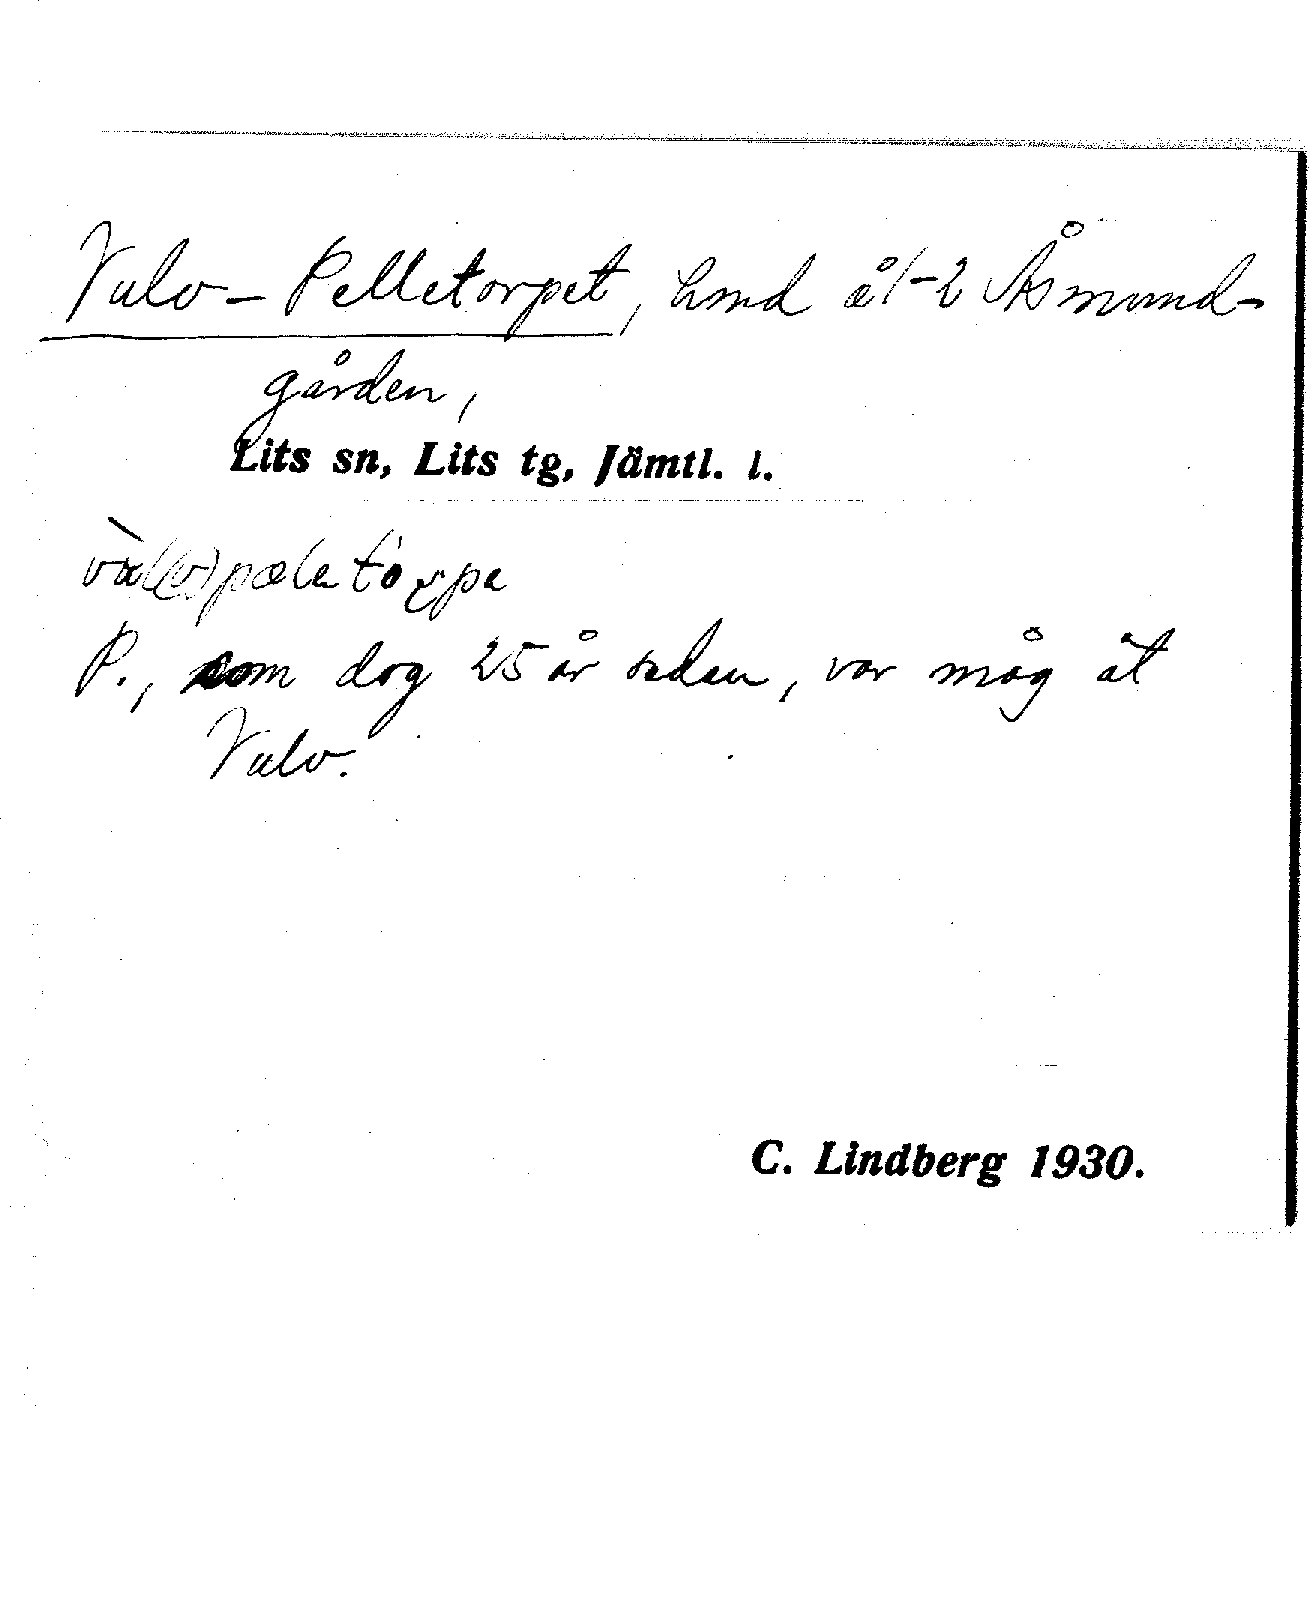 Valv-Pelletorpet, hmd å1-2 Åsmund-
gården,
Lits sn, Lits tg, Jämtl. l.
P., som dog 25 år sedan, var måg åt
Valv.
C. Lindberg 1930.